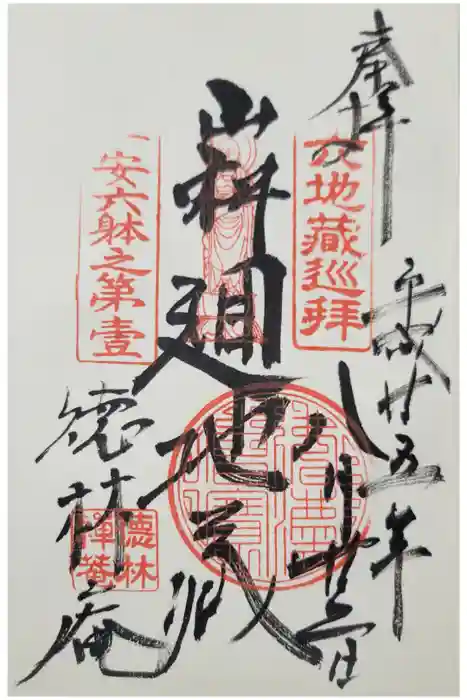 奉拝
平成廿五年
八月
六地蔵巡拝
山科廻地蔵
安六躰之第壹
徳林庵
德林
禪菴